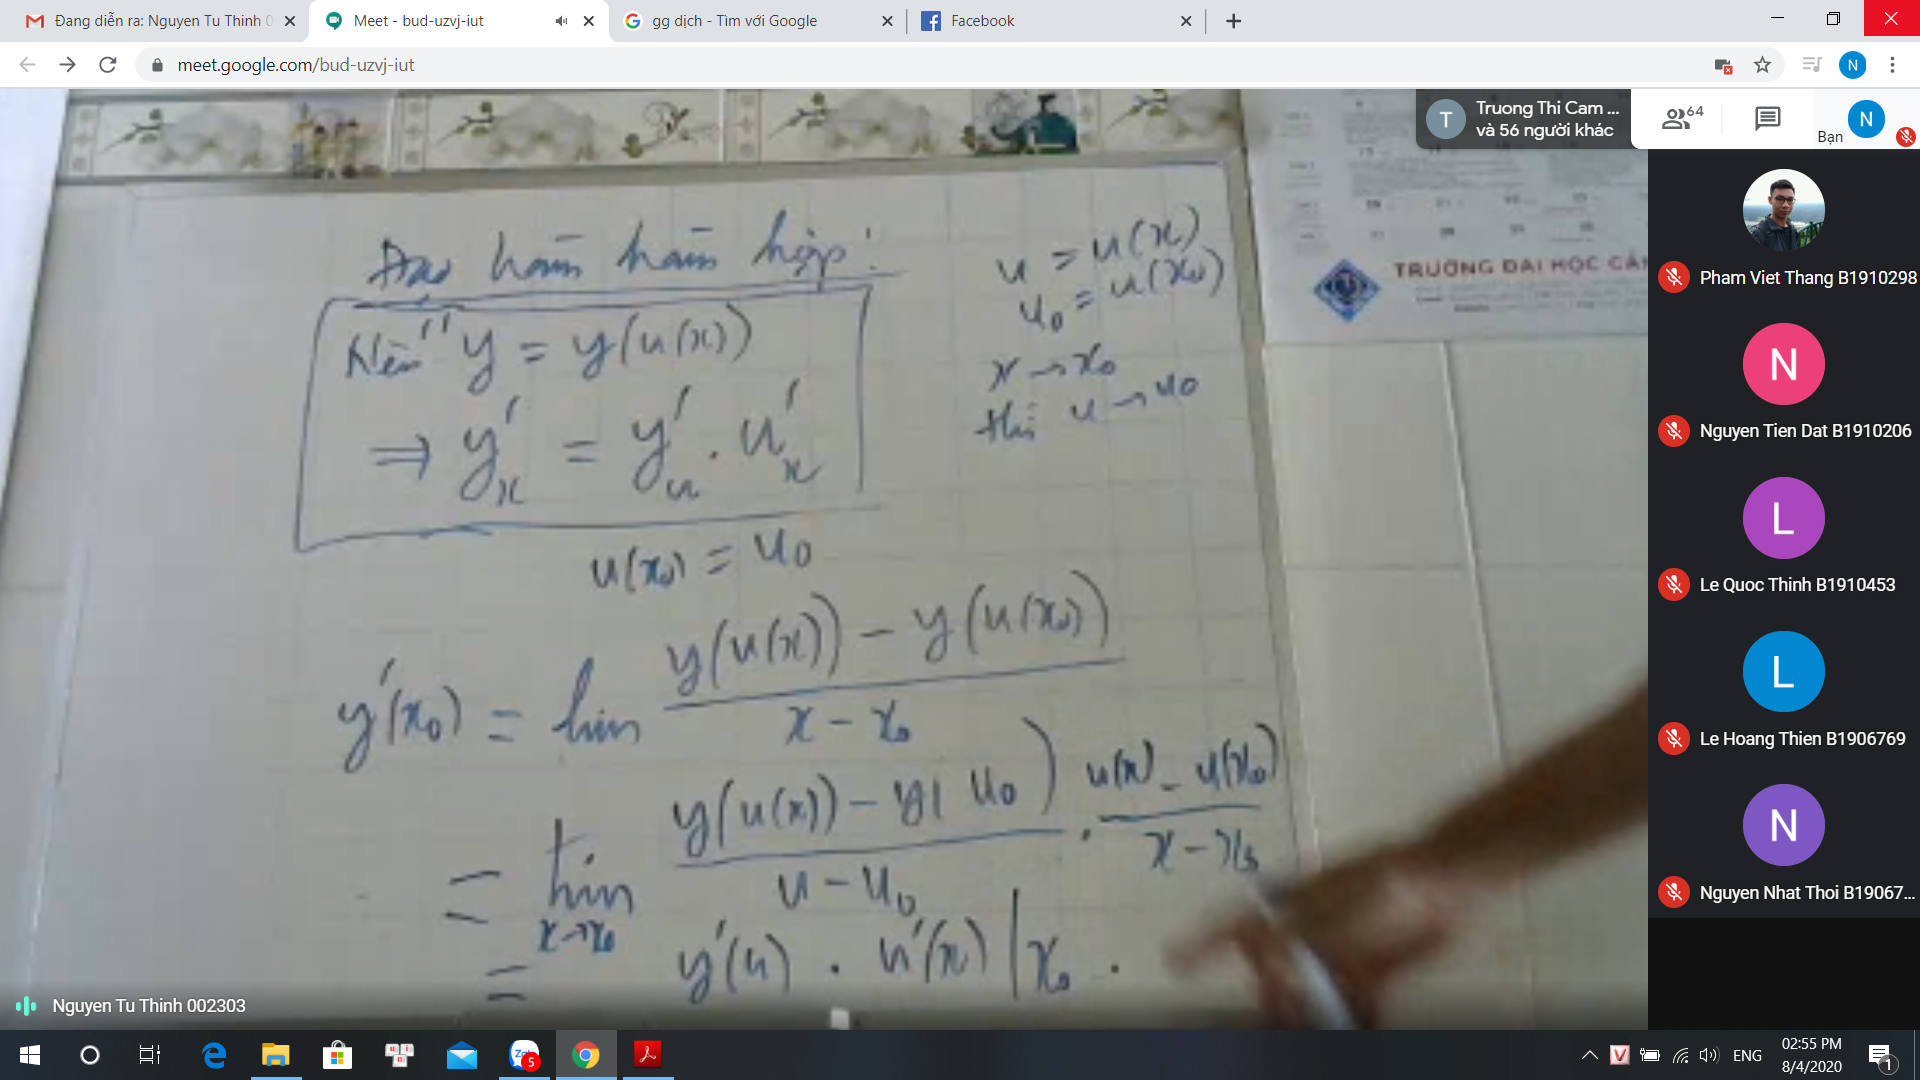 Đang diễn ra: Nguyen Tu Thinh 0
Meet - bud-uzvj-iut
gg dịch - Tìm với Google
Facebook
meet.google.com/bud-uzvj-iut
N
T
Truong Thi Cam ...
và 56 người khác
64
Bạn
N
TRƯỜNG ĐẠI HỌC CẦN
Đạo hàm hàm hợp:
Nếu y = y(u(x))
⇒ y'x = y'u . u'x
u = u(x)
u0 = u(x0)
x → x0
thì u → u0
u(x0) = u0
y'(x0) = lim y(u(x)) - y(u(x0))
x - x0
= lim y(u(x)) - y(u0) . u(x) - u(x0)
x→x0 u - u0 x - x0
= y'(u) . u'(x) | x0 .
Nguyen Tu Thinh 002303
Pham Viet Thang B1910298
N
Nguyen Tien Dat B1910206
L
Le Quoc Thinh B1910453
L
Le Hoang Thien B1906769
N
Nguyen Nhat Thoi B19067...
5
V
ENG
02:55 PM
8/4/2020
1